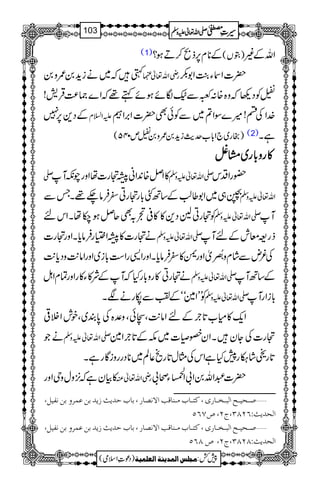 سیرتِ مصطفی صلی اللہ تعالیٰ علیہ وسلم 103
اللہ کے غیر (بتوں) کے نام پر ذبح کرتے ہو؟ (1)
حضرت اسماء بنت ابوبکر رضی اللہ تعالیٰ عنہما کہتی ہیں کہ میں نے زید بن عمرو بن
نفیل کو دیکھا وہ خانہ کعبہ سے ٹیک لگائے ہوئے کہتے تھے کہ اے جماعت قریش!
خدا کی قسم! میرے سوا تم میں سے کوئی بھی حضرت ابراہیم علیہ السلام کے دین پر نہیں
ہے۔ (2) (بخاری ج۱ باب حدیث زید بن عمرو بن نفیل ص۵۴۰)
کاروباری مشاغل
حضور اقدس صلی اللہ تعالیٰ علیہ وسلم کا اصل خاندانی پیشہ تجارت تھا اور چونکہ آپ صلی
اللہ تعالیٰ علیہ وسلم بچپن ہی میں ابوطالب کے ساتھ کئی بار تجارتی سفر فرما چکے تھے۔ جس سے
آپ صلی اللہ تعالیٰ علیہ وسلم کو تجارتی لین دین کا کافی تجربہ بھی حاصل ہو چکا تھا۔ اس لئے
ذریعہ معاش کے لئے آپ صلی اللہ تعالیٰ علیہ وسلم نے تجارت کا پیشہ اختیار فرمایا۔ اور تجارت
کی غرض سے شام و بصریٰ اور یمن کا سفر فرمایا۔ اور ایسی راست بازی اور امانت و دیانت
کے ساتھ آپ صلی اللہ تعالیٰ علیہ وسلم نے تجارتی کاروبار کیا کہ آپ کے شرکاء کار اور تمام اہل
بازار آپ صلی اللہ تعالیٰ علیہ وسلم کو ”امین“ کے لقب سے پکارنے لگے۔
ایک کامیاب تاجر کے لئے امانت، سچائی، وعدہ کی پابندی، خوش اخلاقی
تجارت کی جان ہیں۔ ان خصوصیات میں مکہ کے تاجر امین صلی اللہ تعالیٰ علیہ وسلم نے جو
تاریخی شاہکار پیش کیا ہے اس کی مثال تاریخ عالم میں نادر روزگار ہے۔
حضرت عبداللہ بن ابی الحمساء صحابی رضی اللہ تعالیٰ عنہ کا بیان ہے کہ نزول وحی اور
صحیح البخاری، کتاب مناقب الانصار، باب حدیث زید بن عمرو بن نفیل،
الحدیث:۳۸۲۶، ج۲، ص۵۶۷
صحیح البخاری، کتاب مناقب الانصار، باب حدیث زید بن عمرو بن نفیل،
الحدیث:۳۸۲۸، ج۲، ص۵۶۸
پیش کش: مجلس المدینة العلمیة (دعوت اسلامی)